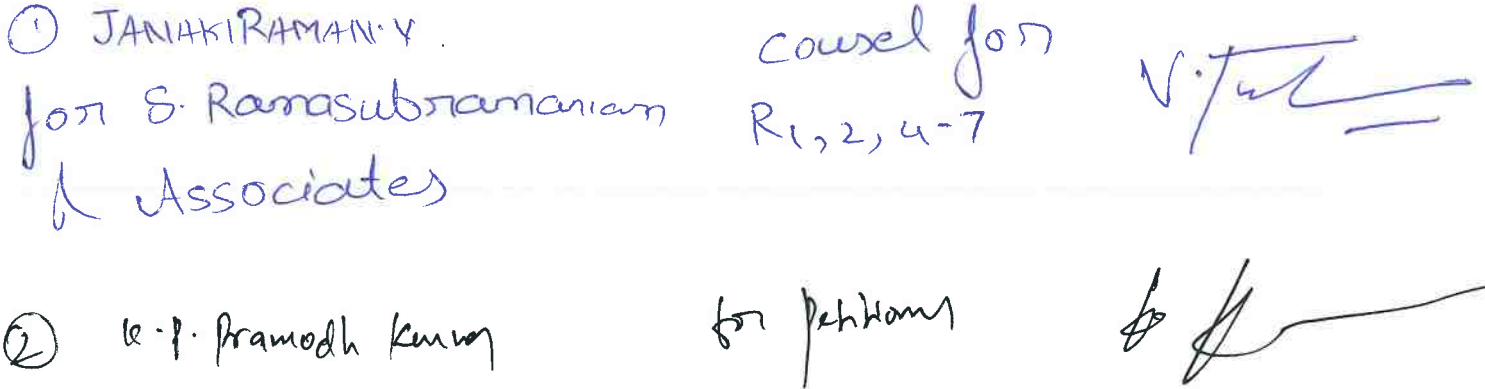 ① JANAKIRAMAN.V.
for S. Ramasubramanian
& Associates
cousel for
R1, 2, 4-7
② K.P. Pramodh Kumar
for Petitioners